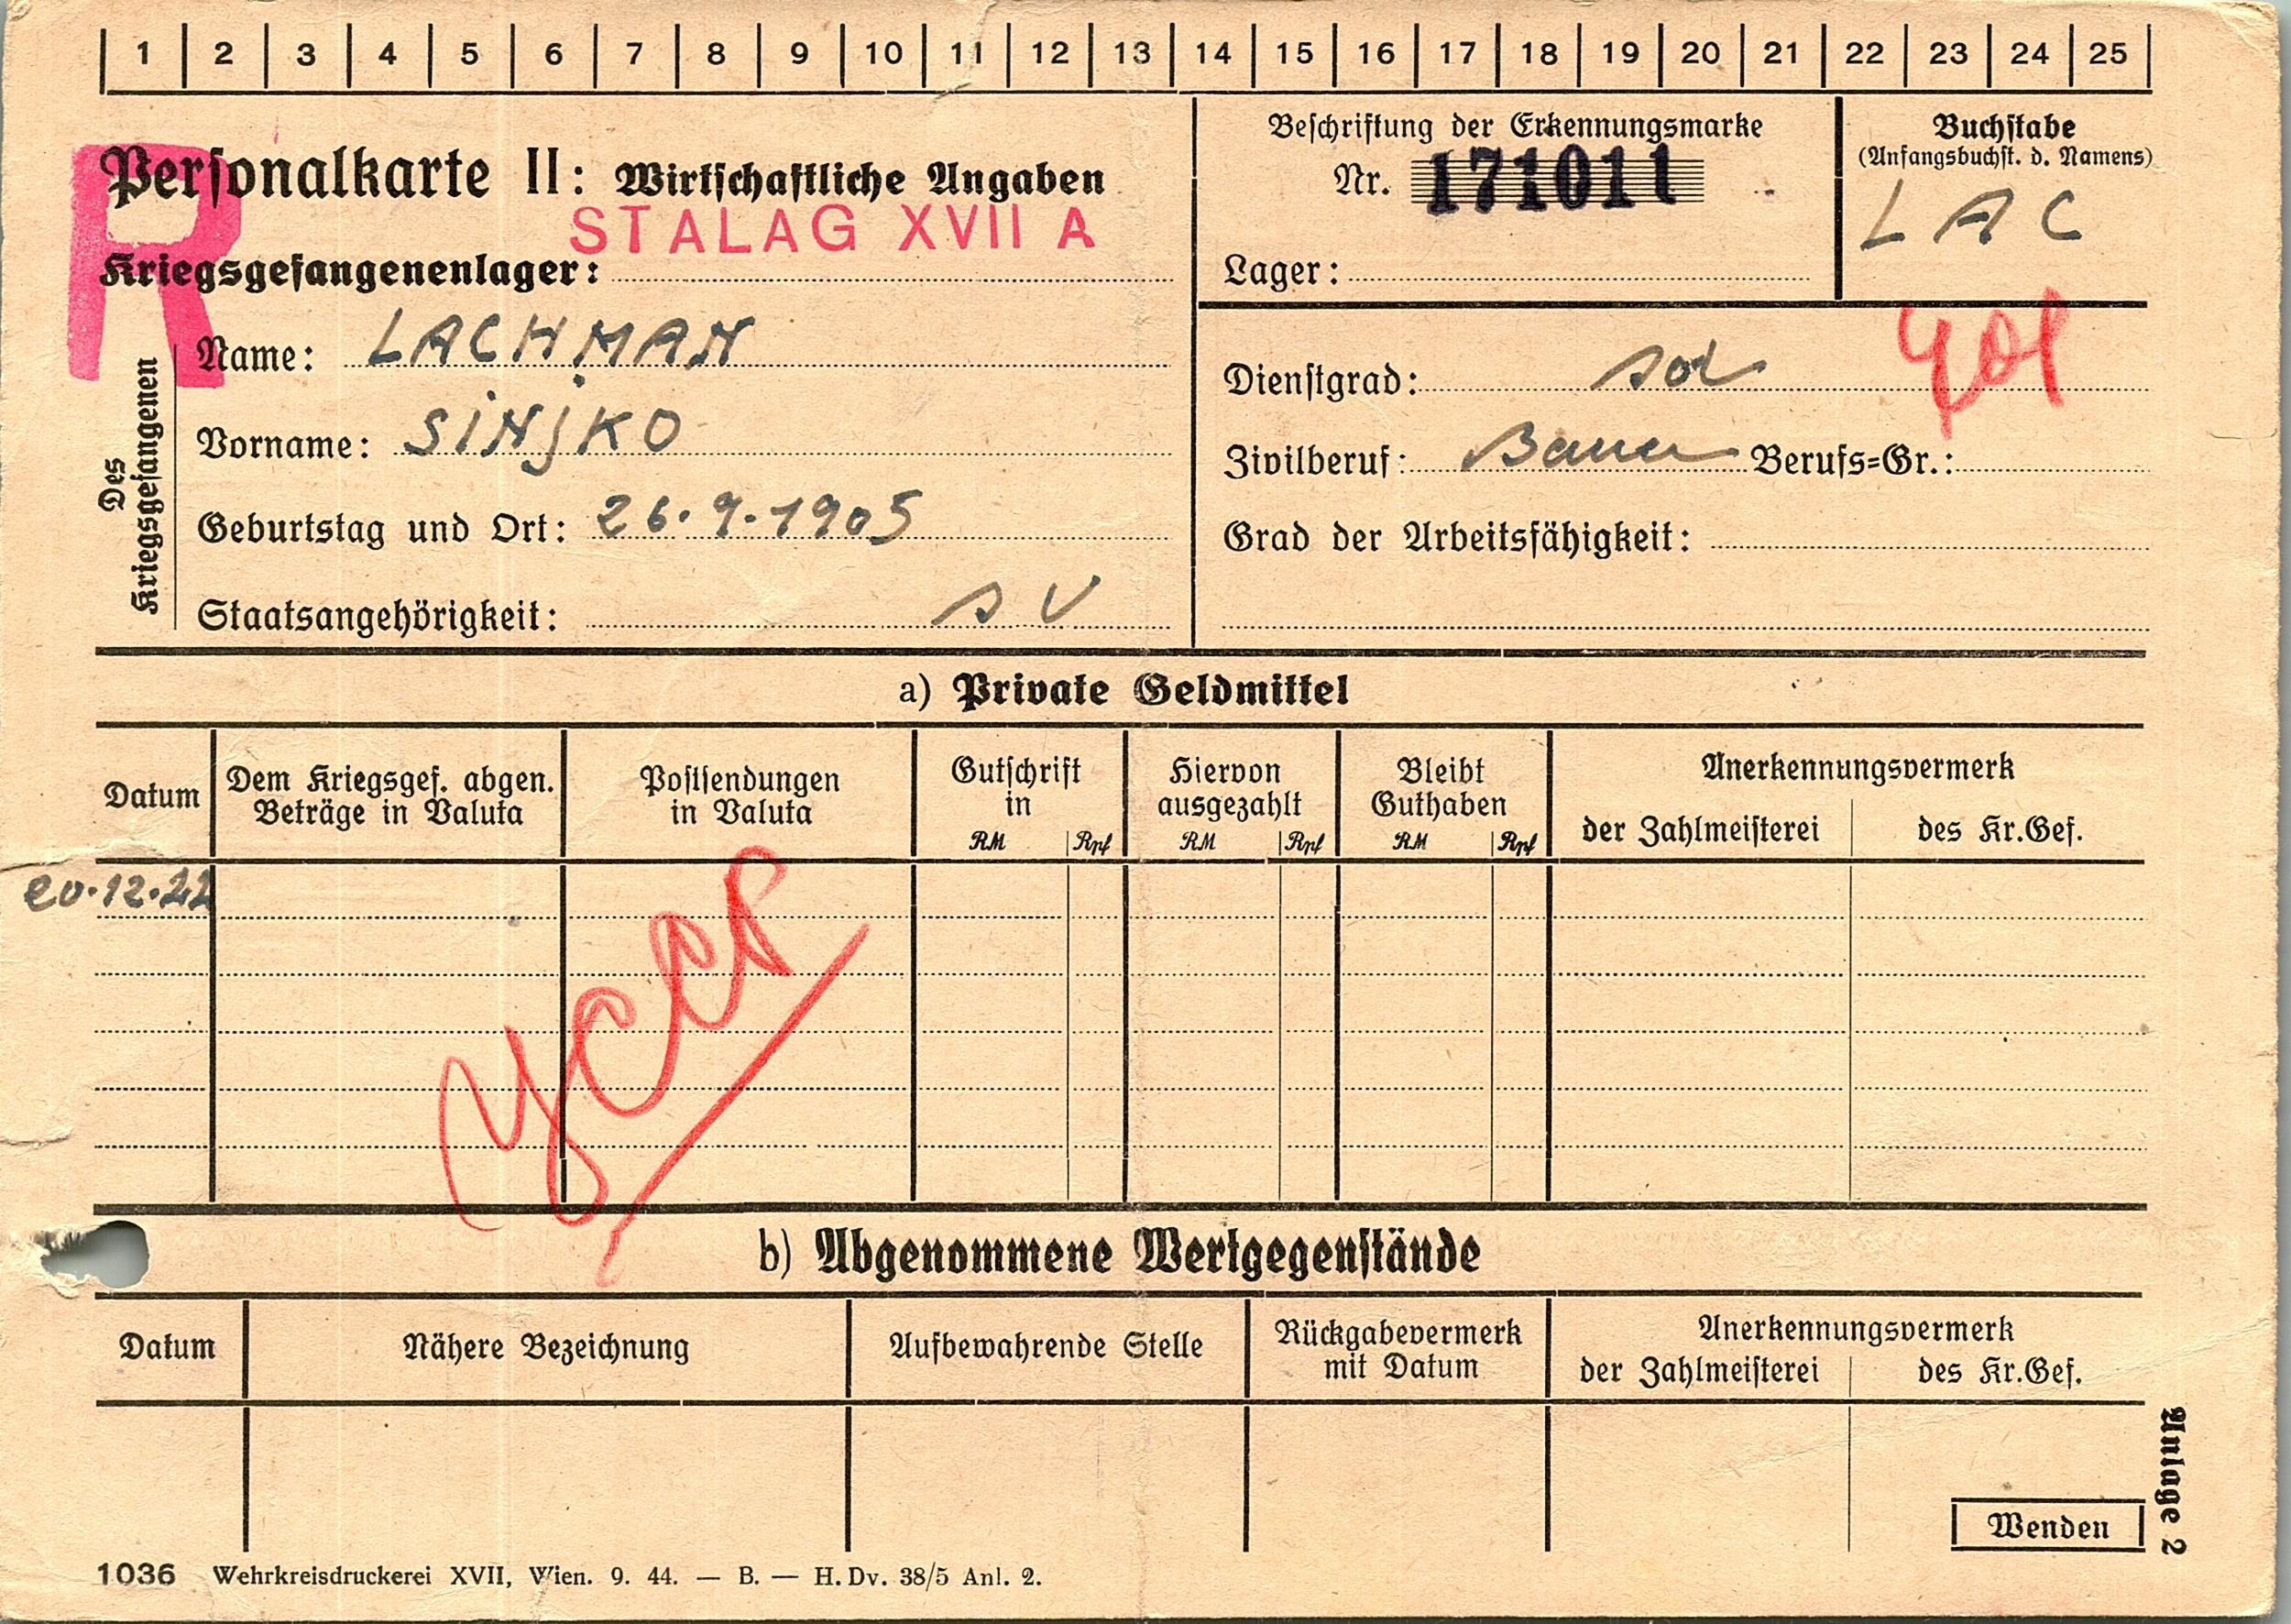 1 2 3 4 5 6 7 8 9 10 11 12 13 14 15 16 17 18 19 20 21 22 23 24 25
R
Personalkarte II: Wirtschaftliche Angaben
STALAG XVII A
Kriegsgefangenenlager:
Des Kriegsgefangenen
Name: LACHMAN
Vorname: SINJKO
Geburtstag und Ort: 26.9.1905
Staatsangehörigkeit: SU
Beschriftung der Erkennungsmarke
Nr. 171011
Lager:
Buchstabe
(Anfangsbuchst. d. Namens)
LAC
Dienstgrad: sol
Zivilberuf: Bauer Berufs=Gr.:
Grad der Arbeitsfähigkeit:
a) Private Geldmittel
Datum
Dem Kriegsgef. abgen.
Beträge in Valuta
Postsendungen
in Valuta
Gutschrift
in
RM Rpf
Hiervon
ausgezahlt
RM Rpf
Bleibt
Guthaben
RM Rpf
Anerkennungsvermerk
der Zahlmeisterei des Kr.Gef.
20.12.44
УССР
b) Abgenommene Wertgegenstände
Datum
Nähere Bezeichnung
Aufbewahrende Stelle
Rückgabevermerk
mit Datum
Anerkennungsvermerk
der Zahlmeisterei des Kr.Gef.
Anlage 2
Wenden
1036 Wehrkreisdruckerei XVII, Wien. 9. 44. — B. — H. Dv. 38/5 Anl. 2.